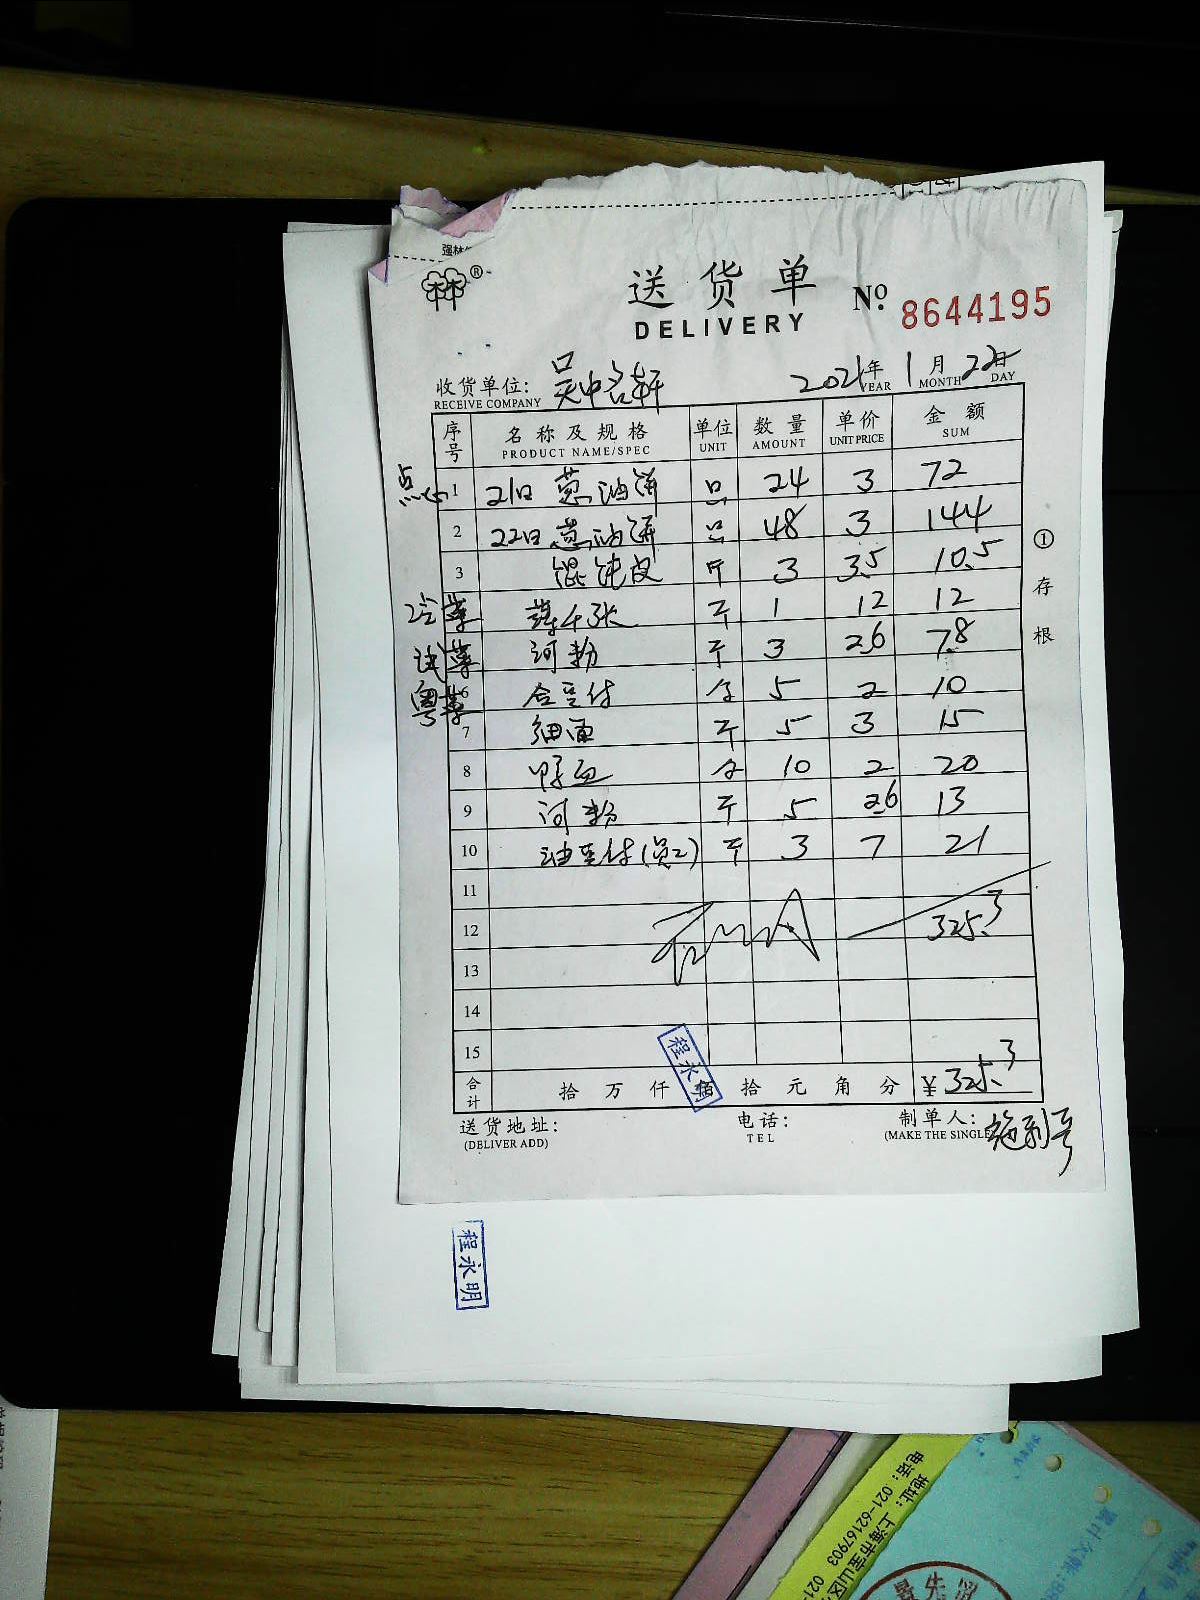 强林
®
送货单
DELIVERY
№ 8644195
收货单位: 吴中名轩
RECEIVE COMPANY
2021年 1月 22日
YEAR MONTH DAY
序号 名称及规格 单位 数量 单价 金额
PRODUCT NAME/SPEC UNIT AMOUNT UNIT PRICE SUM
点心 1 21日 葱油饼 只 24 3 72
2 22日 葱油饼 只 48 3 144
3 馄饨皮 斤 3 3.5 10.5
冷菜 薄千张 斤 1 12 12
试菜 河粉 斤 3 2.6 7.8
粤菜 6 合豆付 合 5 2 10
7 细面 斤 5 3 15
8 鸭血 合 10 2 20
9 河粉 斤 5 2.6 13
10 油豆付(员工) 斤 3 7 21
11
12 325.3
13
14
15
合计 拾 万 仟 佰 拾 元 角 分 ¥325.3
①存根
程永明
送货地址:
(DELIVER ADD)
电话:
TEL
制单人:
(MAKE THE SINGLE
程永明
地址: 上海市宝山区
电话: 021-62167903 021-